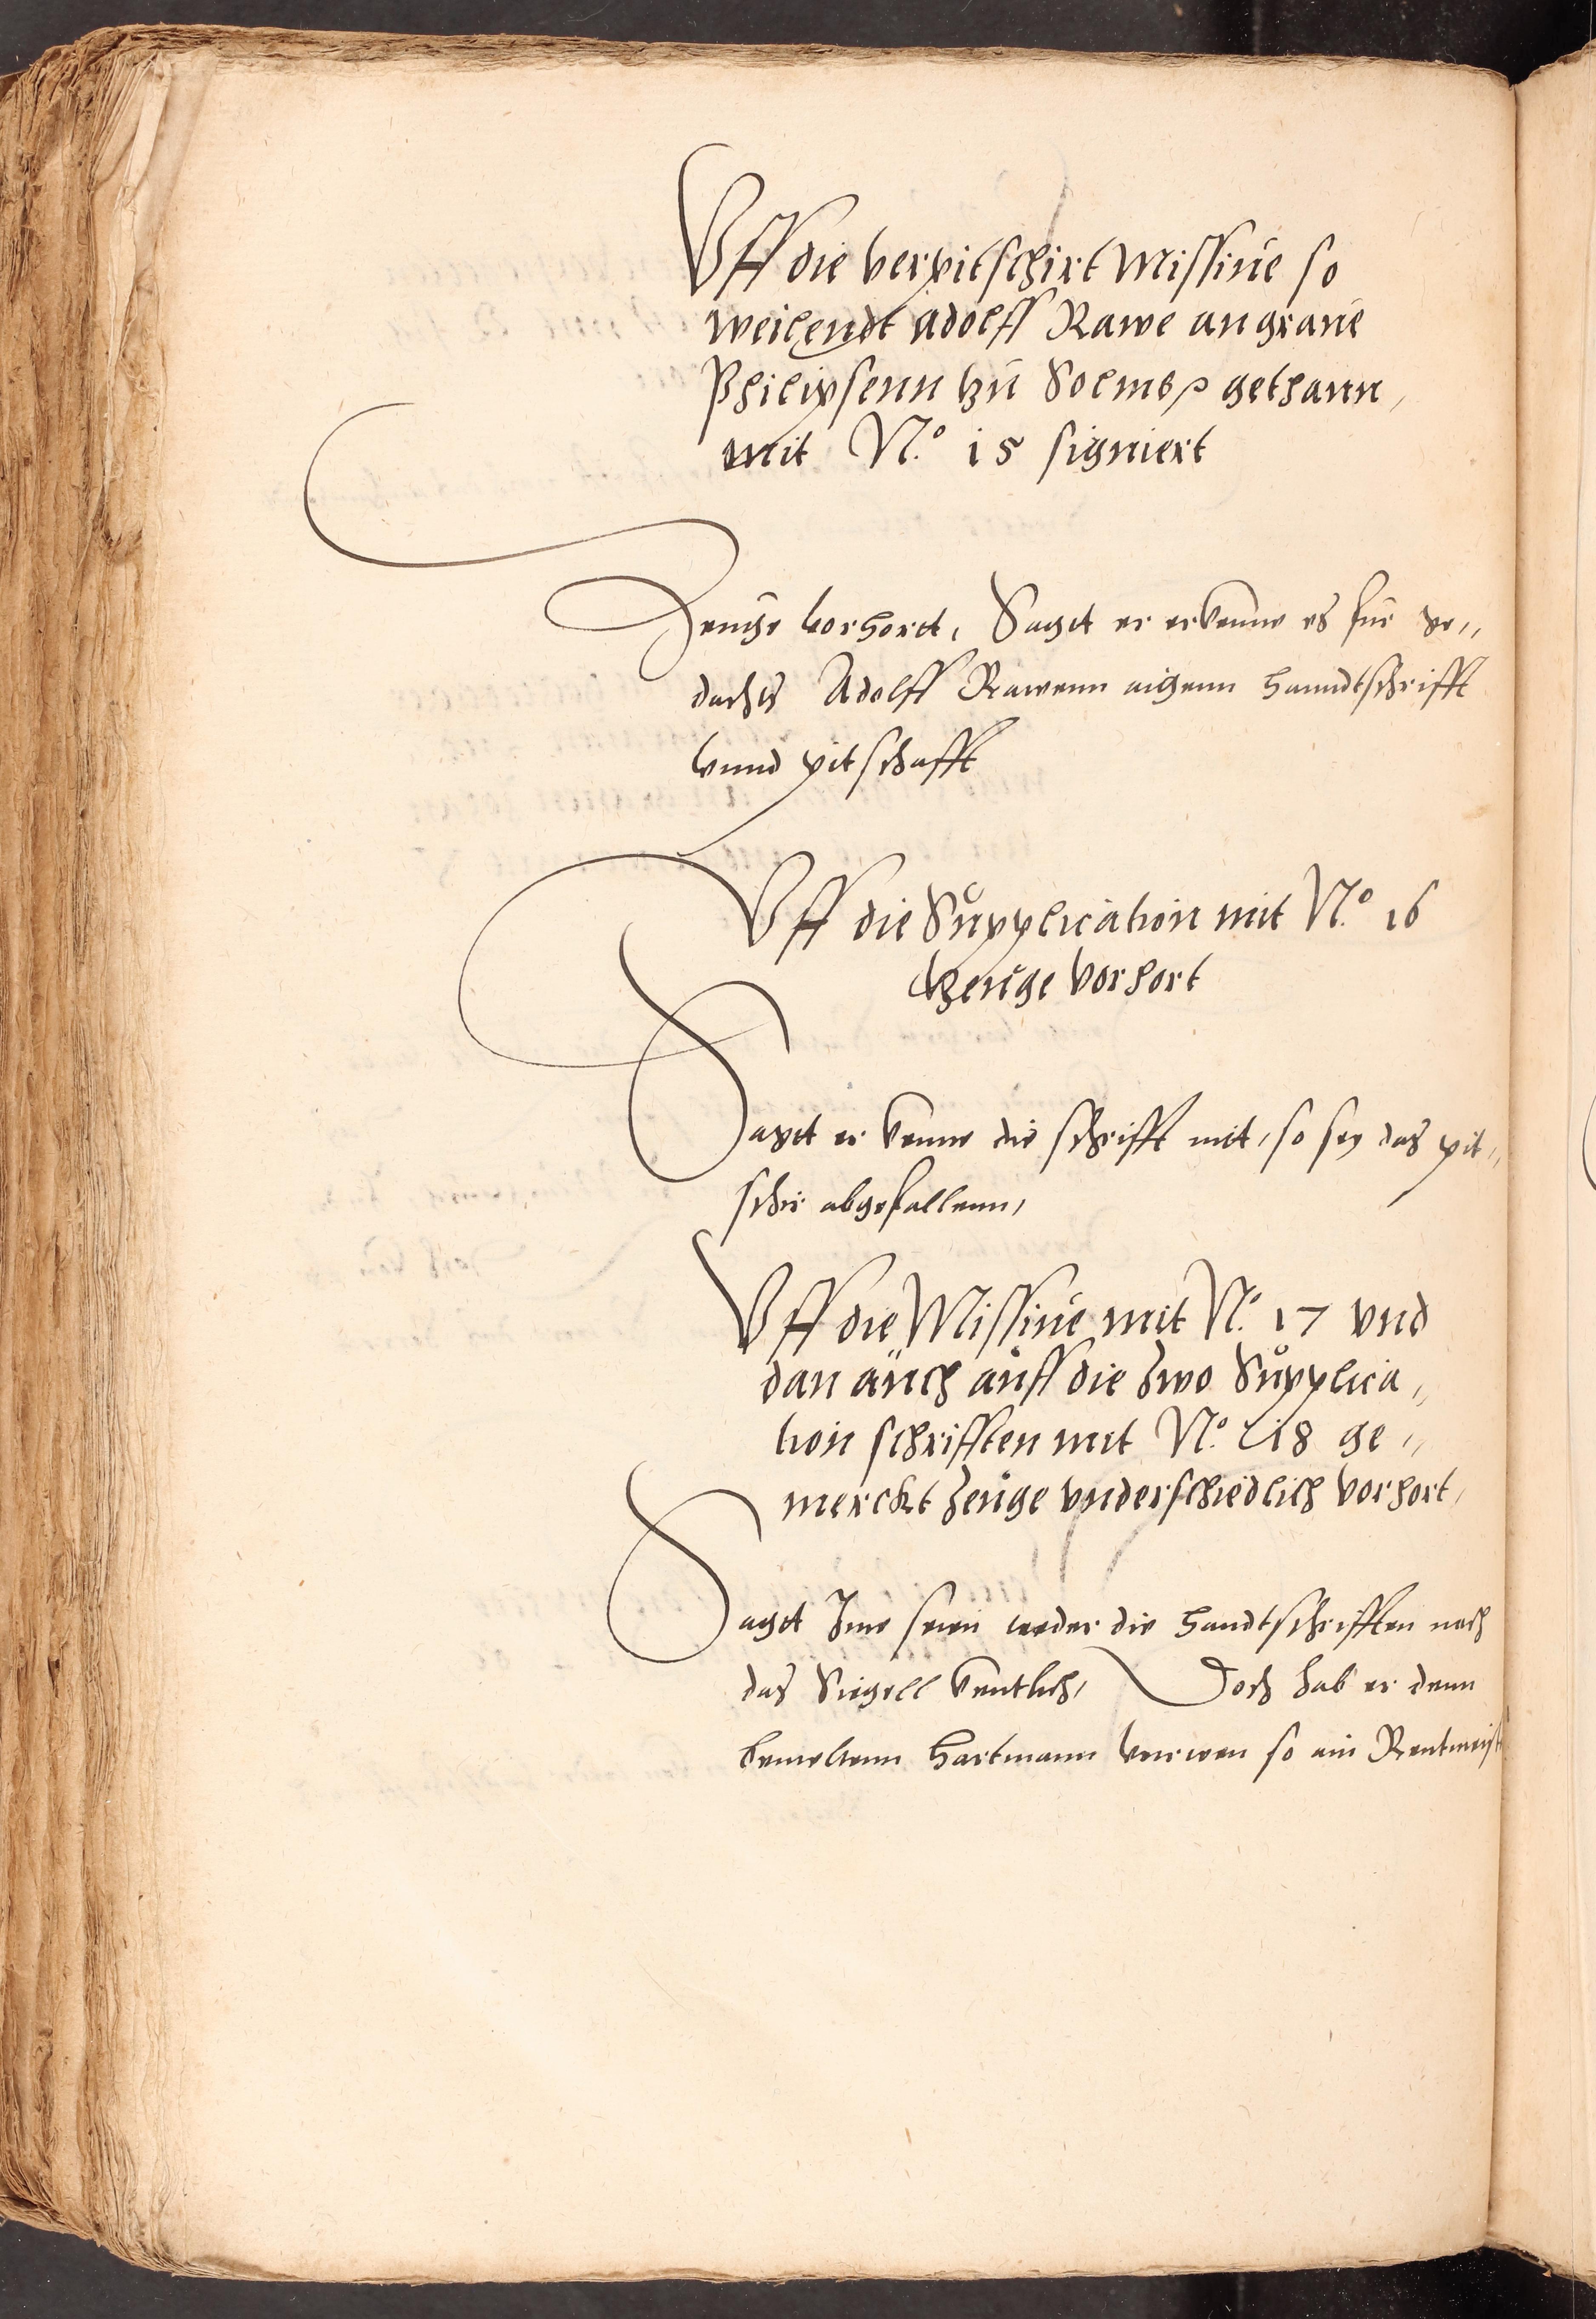 Vff die verpitschirt Missiue so
weilendt Adolff Rawe an graue
Philipsenn tzu Solmes gethann,
mit N.º 15 signiert
Zeuge vorhort, Sagt er erkenne es fur ge„
dachts Adolff Rawenn aigenn hanndtschrifft
vnnd pitschafft
Vff die Supplication mit N.º 16
tzeuge vorhort
Sagt er kenne die schrifft nit, so sey das pit„
schir abgefallenn,
Vff die Missiue mit N.º 17 vnd
dan auch auff die zwo Supplica„
tion schrifften mit N.º 18 ge„
merckt zeuge vnderschiedlich vorhort,
Sagt Ime seien weder die handtschrifften noch
das Siegell kentlich, Doch hab er denn
bemeltenn Hartmann so ein Rentmeist